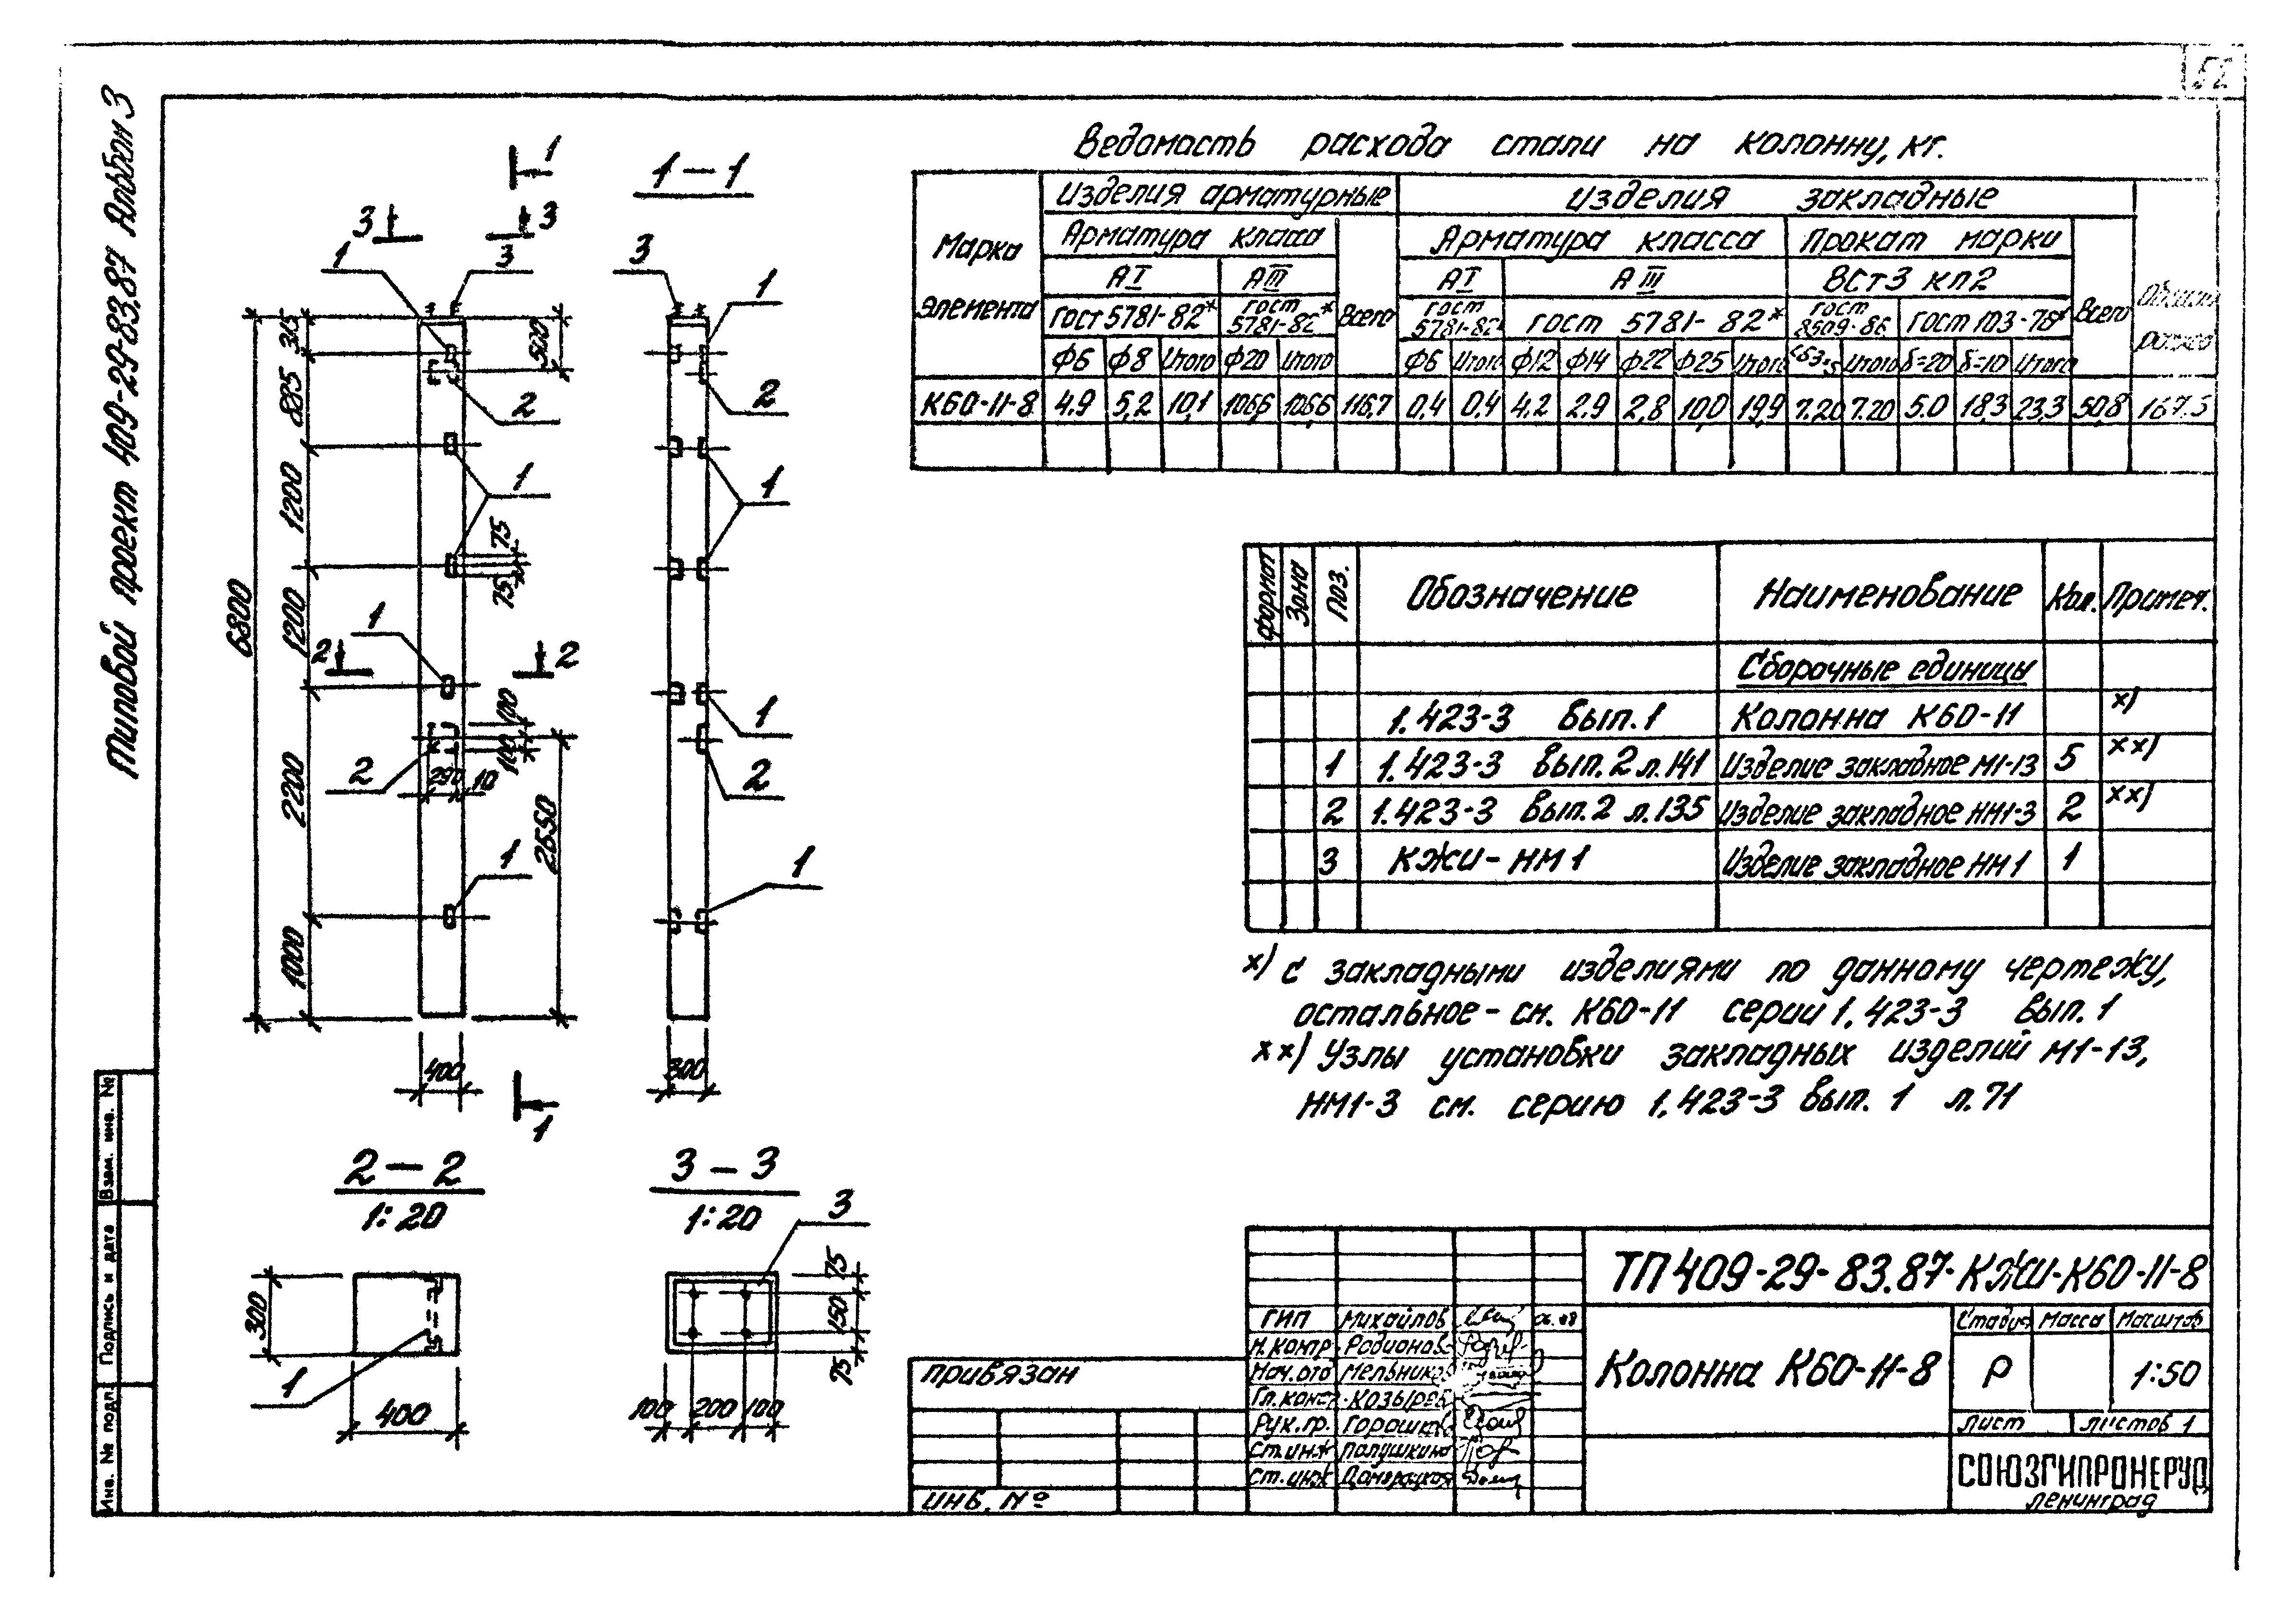 Типовой проект 409-29-83.87 Альбом 3
Ведомость расхода стали на колонну, кг.
Марка элемента
Изделия арматурные
Изделия закладные
Арматура класса
Арматура класса
Прокат марки
АI
АIII
Всего
АI
АIII
ВСт3 кп2
Всего
Общий расход
Гост 5781-82*
Гост 5781-82*
Гост 5781-82*
Гост 5781-82*
Гост 8509-86
Гост 103-76*
Ф6 Ф8 Итого Ф20 Итого Ф6 Итого Ф12 Ф14 Ф22 Ф25 Итого Итого δ=20 δ=10 Итого
К60-11-8 4.9 5,2 10,1 106,6 106,6 116,7 0,4 0.4 4.2 2.9 2,8 10,0 19,9 7.20 7.20 5.0 18,3 23,3 50,8 167.5
1
1-1
3 3
1 3
3 1
315
500
885
2 2
1200
1 1
75
75
6800
1200
1
2 2
1
100
100
2
290 10
2
2200
2650
1 1
1000
400
300
1
2-2
1:20
3-3
1:20
3
300
1
400
75
150
75
100 200 100
Формат Зона Поз. Обозначение Наименование Кол. Примеч.
Сборочные единицы
1.423-3 Вып.1 Колонна К60-11 х)
1 1.423-3 Вып.2 л.141 Изделие закладное М1-13 5 хх)
2 1.423-3 Вып.2 л.135 Изделие закладное НМ1-3 2 хх)
3 КЖИ-НМ1 Изделие закладное НМ1 1
х) С закладными изделиями по данному чертежу,
остальное - см. К60-11 серии 1.423-3 Вып.1
хх) Узлы установки закладных изделий М1-13,
НМ1-3 см. серию 1.423-3 Вып. 1 л.71
ТП 409-29-83.87-КЖИ-К60-11-8
ГИП Михайлов
Н.контр. Родионов
Нач.отд Мельников
Гл.конст. Козырев
Рук.гр. Горашков
Ст.инж Палушкина
Ст.инж
Колонна К60-11-8
Стадия Масса Масштаб
Р 1:50
Лист Листов 1
СОЮЗГИПРОНЕРУД
Ленинград
Привязан
Инв. №
Взам. инв. №
Подпись и дата
Инв. № подл.